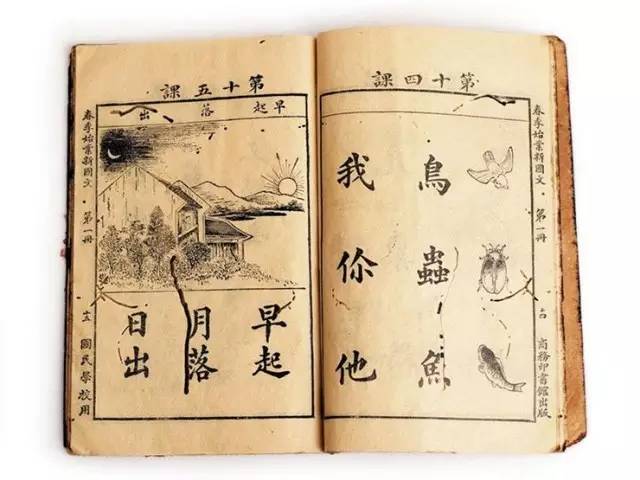 第十四課
春季始業新國文 第一冊 十四 商務印書館出版
鳥蟲魚
我你他
第十五課
早起落出
早起
月落
日出
春季始業新國文 第一冊 十五 國民學校用